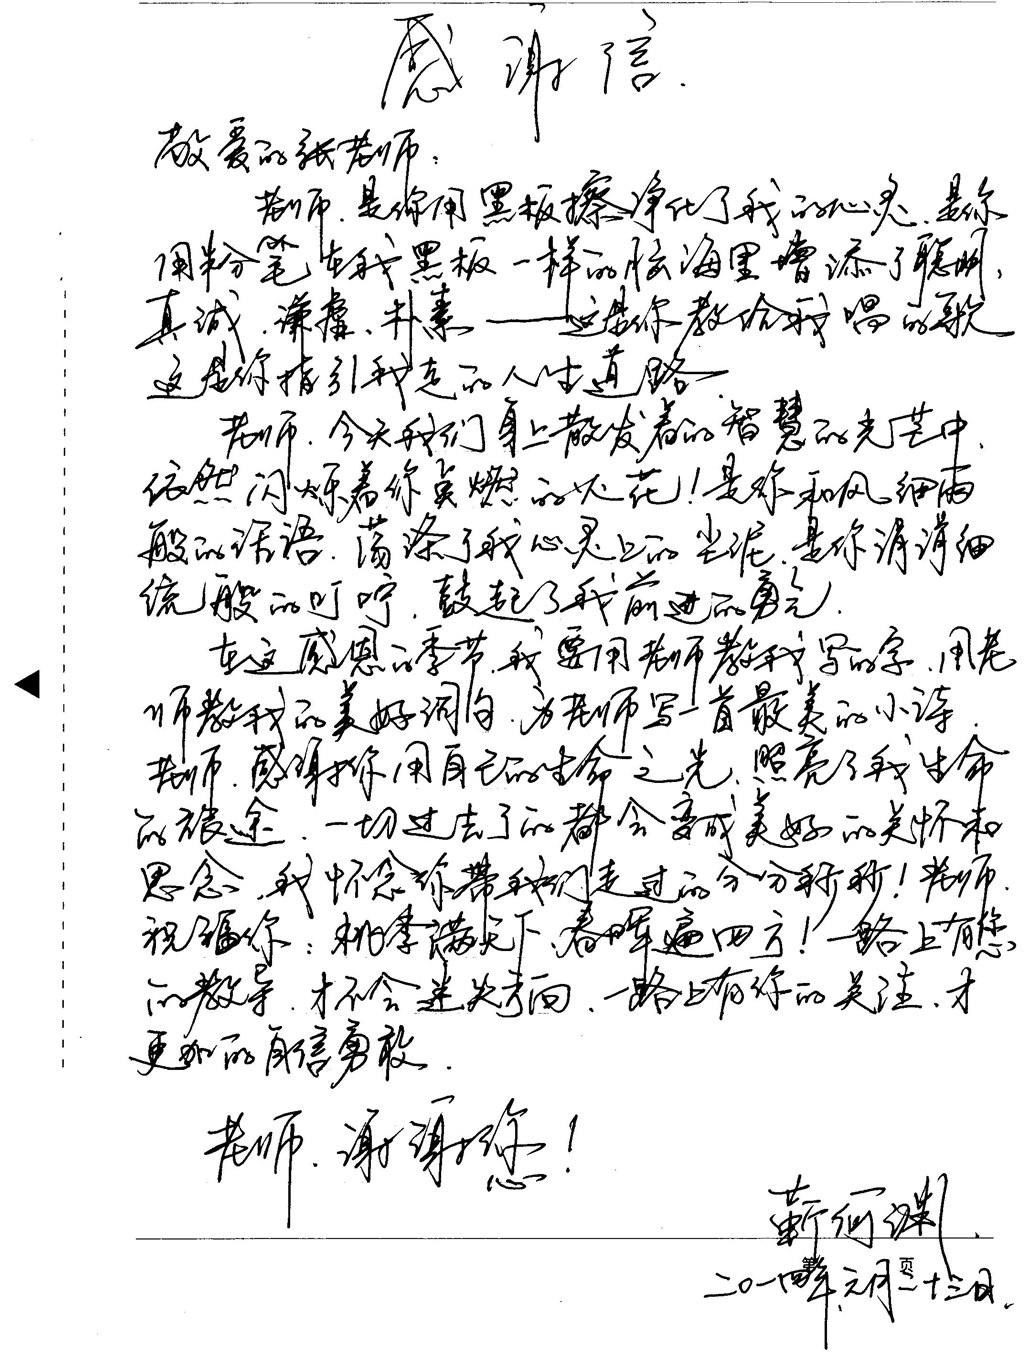 感谢信.
敬爱的张老师:
老师.是你用黑板擦净化了我的心灵.是你
用粉笔在我黑板一样的脑海里增添了聪明,
真诚.谦虚.朴素——这是你教给我唱的歌
这是你指引我走的人生道路
老师.今天我们身上散发着的智慧的光芒中,
依然闪烁着你点燃的火花!是你和风细雨
般的话语.荡涤了我心灵上的尘泥.是你涓涓细
流般的叮咛.鼓起了我前进的勇气.
在这感恩的季节.我要用老师教我写的字.用老
师教我的美好词句.为老师写一首最美的小诗.
老师.感谢你用自己的生命之光.照亮了我生命
的旅途.一切过去了的都会变成美好的关怀和
思念.我怀念你带我们走过的分分秒秒!老师.
祝福你:桃李满天下.春晖遍四方!一路上有您
的教导.才不会迷失方向.一路上有你的关注.才
更加的自信勇敢.
老师.谢谢您!
靳何渊.
第 页
二〇一四年.元月二十三日.